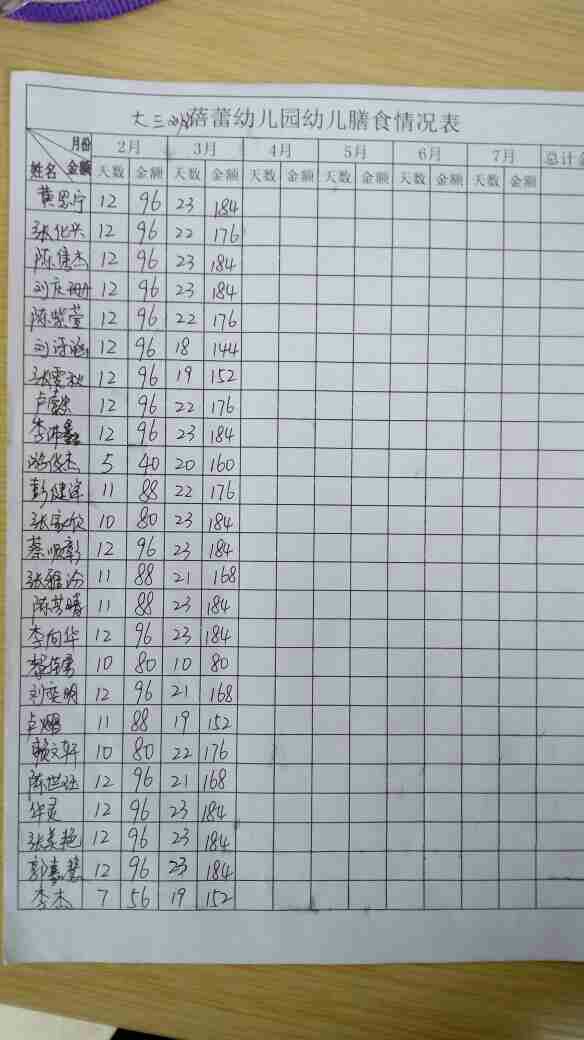 大三班蓓蕾幼儿园幼儿膳食情况表
月份 2月 3月 4月 5月 6月 7月 总计金
姓名 金额 天数 金额 天数 金额 天数 金额 天数 金额 天数 金额 天数 金额
黄思宁 12 96 23 184
张化兴 12 96 22 176
陈俊杰 12 96 23 184
刘庆珊 12 96 23 184
陈紫萱 12 96 22 176
刘诗涵 12 96 18 144
张雯秋 12 96 19 152
卢 12 96 22 176
李沛鑫 12 96 23 184
俊杰 5 40 20 160
彭健泽 11 88 22 176
张家欣 10 80 23 184
蔡顺彰 12 96 23 184
张雅汾 11 88 21 168
陈梦曦 11 88 23 184
李向华 12 96 23 184
10 80 10 80
刘奕明 12 96 21 168
卢 11 88 19 152
赖文轩 10 80 22 176
陈世珏 12 96 21 168
华灵 12 96 23 184
张美艳 12 96 23 184
郭嘉慧 12 96 23 184
李杰 7 56 19 152